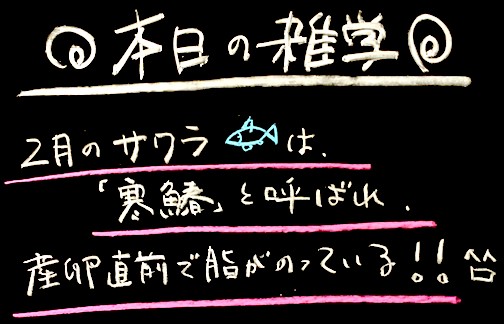 本日の雑学
2月のサワラは、
「寒鰆」と呼ばれ、
産卵直前で脂がのっている!!